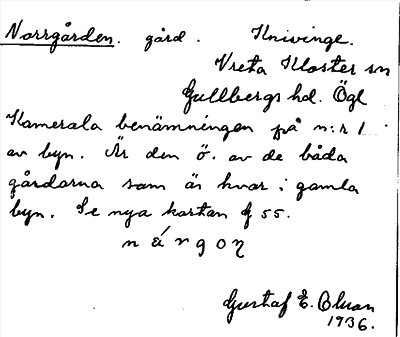 Norrgården. gård. Knivinge.
Vreta Kloster sn
Gullbergs hd. Ögl
Kamerala benämningen på n:r 1
av byn. Är den ö. av de båda
gårdarna som är kvar i gamla
byn. Se nya kartan f 55.
n á r g o ŋ
Gustaf E. Olson
1936.